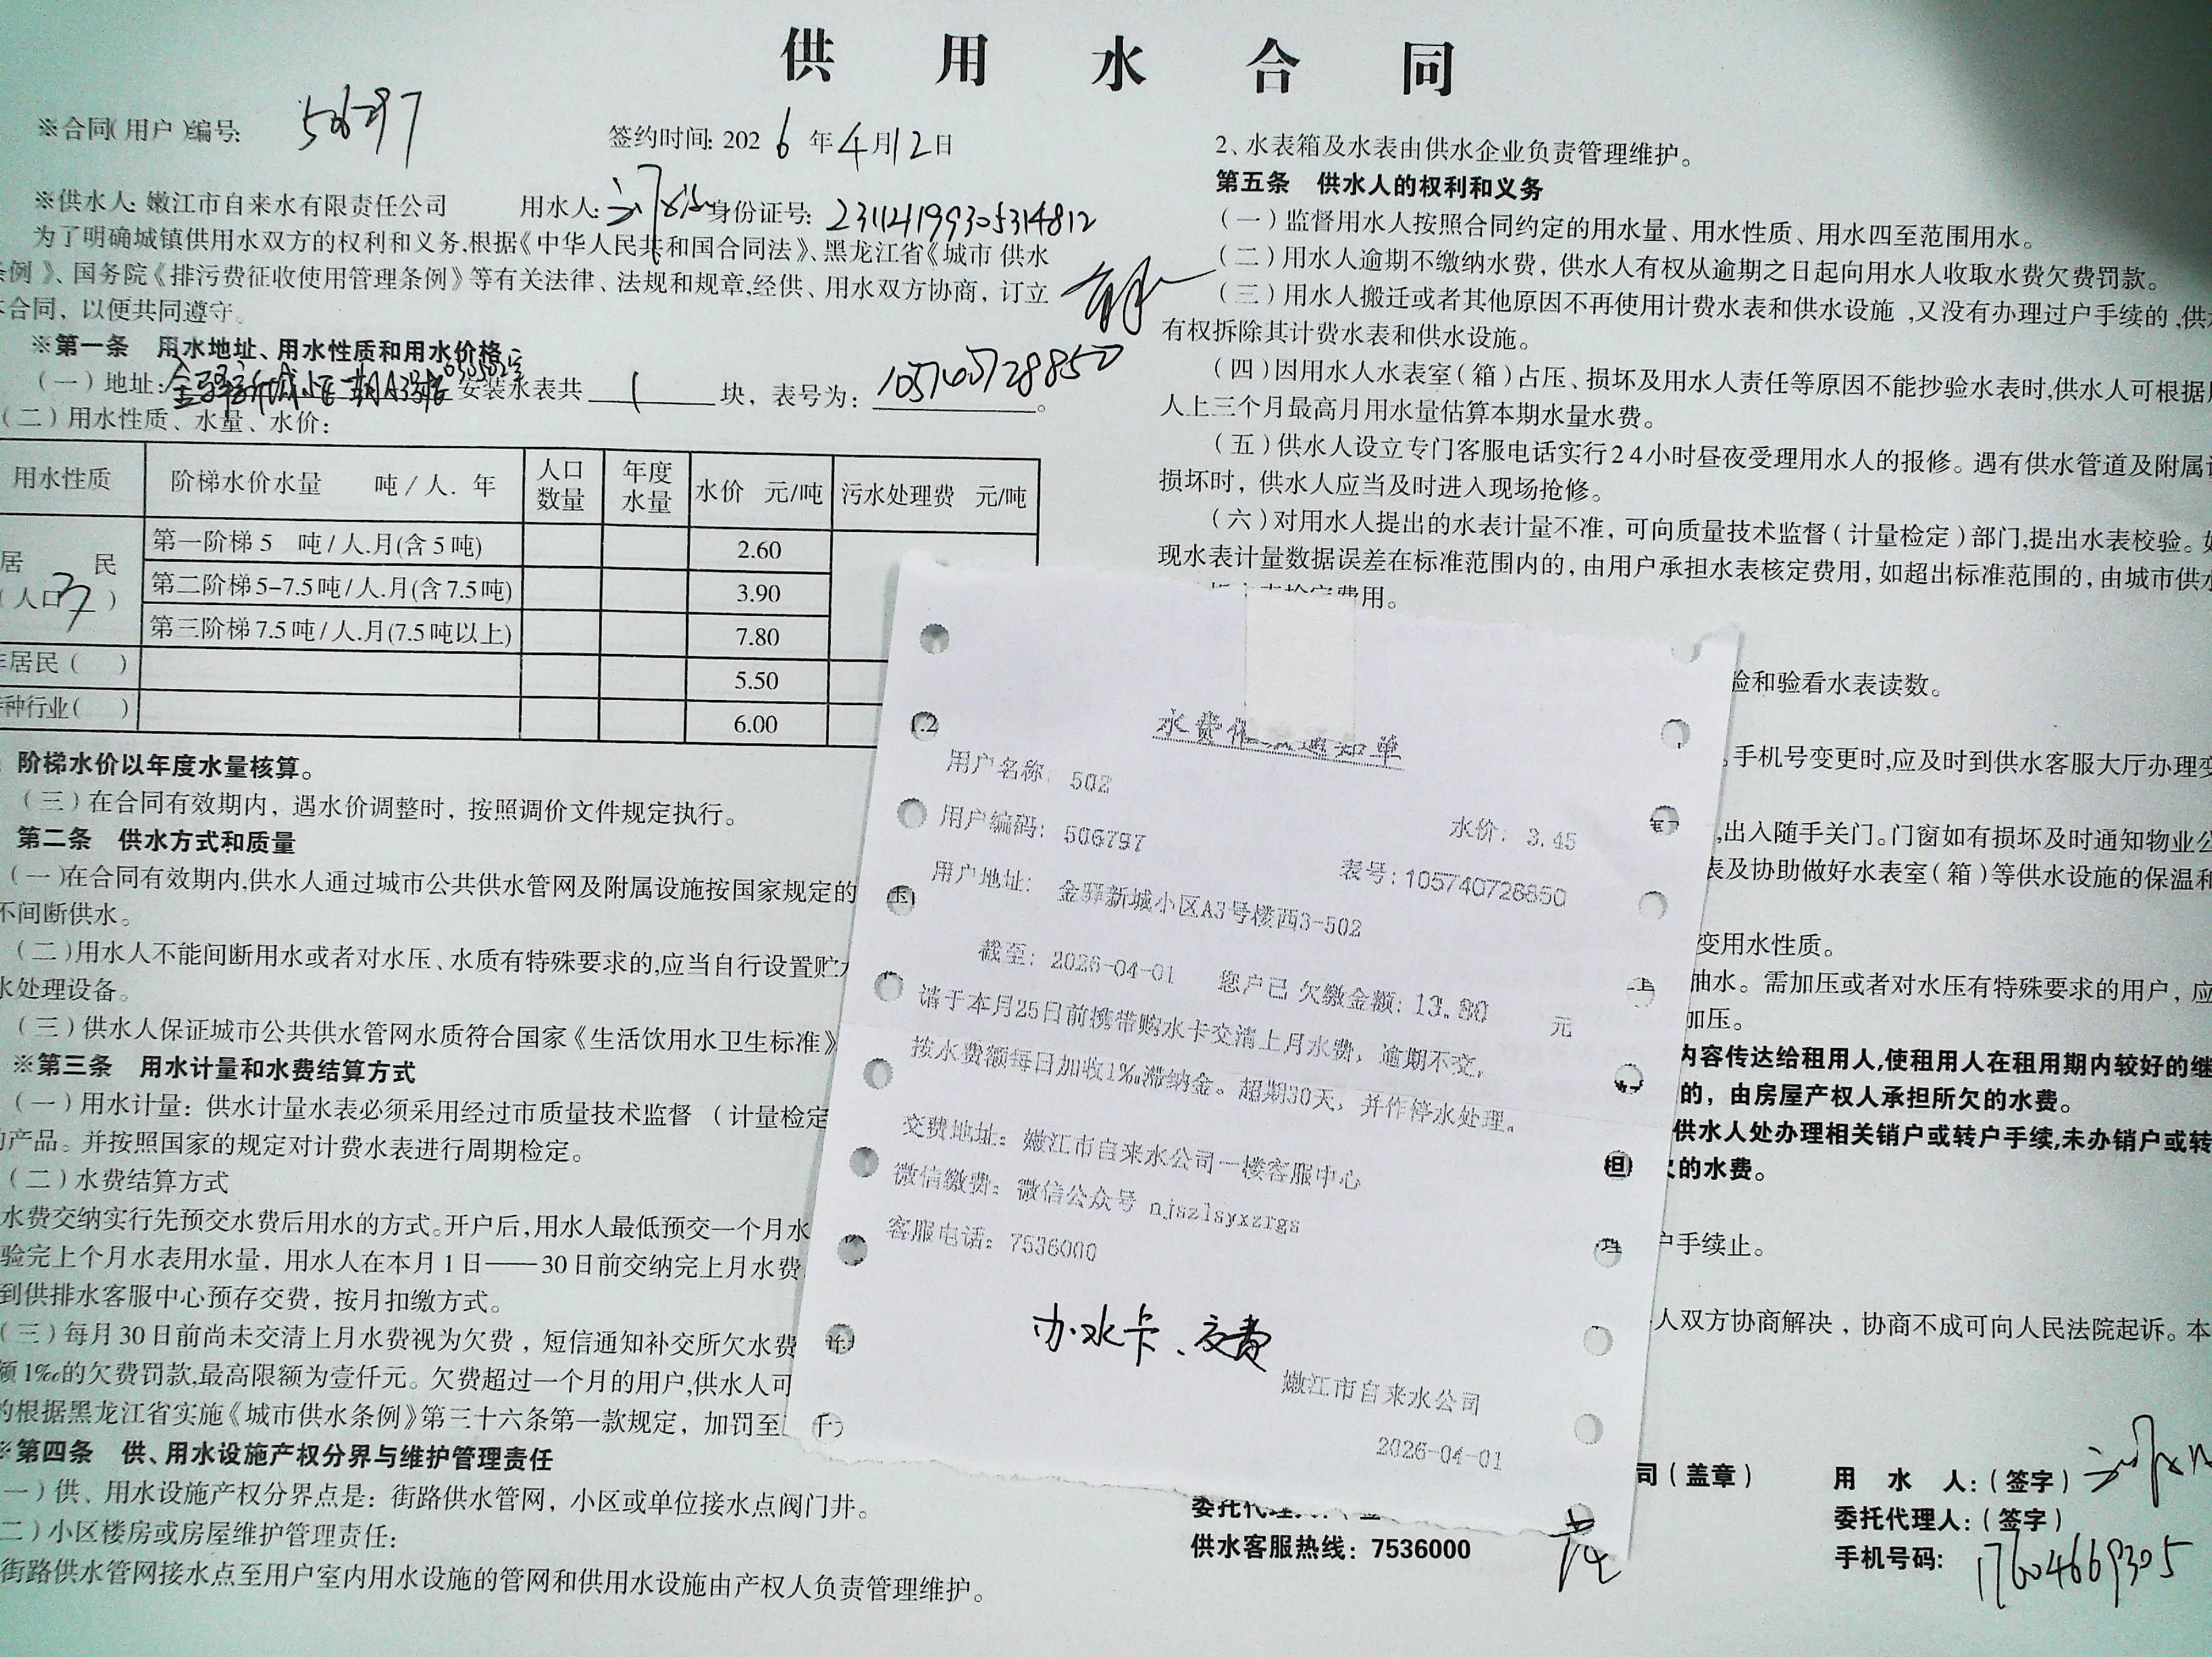 供用水合同
※合同(用户)编号:
签约时间: 2026年4月12日
※供水人: 嫩江市自来水有限责任公司 用水人: 身份证号: 231121199305314812
为了明确城镇供用水双方的权利和义务,根据《中华人民共和国合同法》、黑龙江省《城市 供水
条例》、国务院《排污费征收使用管理条例》等有关法律、法规和规章,经供、用水双方协商，订立
合同，以便共同遵守。
※第一条 用水地址、用水性质和用水价格
(一)地址: 安装水表共 1 块，表号为: 105740728850。
(二)用水性质、水量、水价:
用水性质 阶梯水价水量 吨/人. 年 人口数量 年度水量 水价 元/吨 污水处理费 元/吨
居 民
(人口 )
第一阶梯5 吨/人.月(含5吨) 2.60
第二阶梯5-7.5吨/人.月(含7.5吨) 3.90
第三阶梯7.5吨/人.月(7.5吨以上) 7.80
居民( ) 5.50
种行业( ) 6.00
阶梯水价以年度水量核算。
(三)在合同有效期内，遇水价调整时，按照调价文件规定执行。
第二条 供水方式和质量
(一)在合同有效期内,供水人通过城市公共供水管网及附属设施按国家规定的
不间断供水。
(二)用水人不能间断用水或者对水压、水质有特殊要求的,应当自行设置贮
水处理设备。
(三)供水人保证城市公共供水管网水质符合国家《生活饮用水卫生标准》
※第三条 用水计量和水费结算方式
(一)用水计量：供水计量水表必须采用经过市质量技术监督 (计量检定
的产品。并按照国家的规定对计费水表进行周期检定。
(二)水费结算方式
水费交纳实行先预交水费后用水的方式。开户后,用水人最低预交一个月水
验完上个月水表用水量，用水人在本月1日——30日前交纳完上月水费
到供排水客服中心预存交费，按月扣缴方式。
(三)每月30日前尚未交清上月水费视为欠费，短信通知补交所欠水费
额1‰的欠费罚款,最高限额为壹仟元。欠费超过一个月的用户,供水人可
的根据黑龙江省实施《城市供水条例》第三十六条第一款规定，加罚至
※第四条 供、用水设施产权分界与维护管理责任
一)供、用水设施产权分界点是：街路供水管网，小区或单位接水点阀门井。
二)小区楼房或房屋维护管理责任:
街路供水管网接水点至用户室内用水设施的管网和供用水设施由产权人负责管理维护。
2、水表箱及水表由供水企业负责管理维护。
第五条 供水人的权利和义务
(一)监督用水人按照合同约定的用水量、用水性质、用水四至范围用水。
(二)用水人逾期不缴纳水费，供水人有权从逾期之日起向用水人收取水费欠费罚款。
(三)用水人搬迁或者其他原因不再使用计费水表和供水设施,又没有办理过户手续的,供
有权拆除其计费水表和供水设施。
(四)因用水人水表室(箱)占压、损坏及用水人责任等原因不能抄验水表时,供水人可根据
人上三个月最高月用水量估算本期水量水费。
(五)供水人设立专门客服电话实行24小时昼夜受理用水人的报修。遇有供水管道及附属
损坏时，供水人应当及时进入现场抢修。
(六)对用水人提出的水表计量不准，可向质量技术监督(计量检定)部门,提出水表校验。
现水表计量数据误差在标准范围内的，由用户承担水表核定费用，如超出标准范围的，由城市供
费用。
验和验看水表读数。
。手机号变更时,应及时到供水客服大厅办理
,出入随手关门。门窗如有损坏及时通知物业
表及协助做好水表室(箱)等供水设施的保温
变用水性质。
抽水。需加压或者对水压有特殊要求的用户，应
加压。
内容传达给租用人,使租用人在租用期内较好的
的，由房屋产权人承担所欠的水费。
供水人处办理相关销户或转户手续,未办销户或转
的水费。
户手续止。
人双方协商解决，协商不成可向人民法院起诉。本
水费 通知单
用户名称: 502
用户编码: 506797 水价: 3.45
表号: 105740728850
用户地址: 金驿新城小区A3号楼西3-502
截至: 2026-04-01 您户已 欠缴金额: 13.80 元
请于本月25日前携带购水卡交清上月水费，逾期不交，
按水费额每日加收1‰滞纳金。超期30天，并作停水处理。
交费地址: 嫩江市自来水公司一楼客服中心
微信缴费: 微信公众号 njszlsyxzrgs
客服电话: 7536000
办水卡、交费
嫩江市自来水公司
2026-04-01
司(盖章)
供水客服热线: 7536000
用 水 人: (签字)
委托代理人: (签字)
手机号码: 17604669305